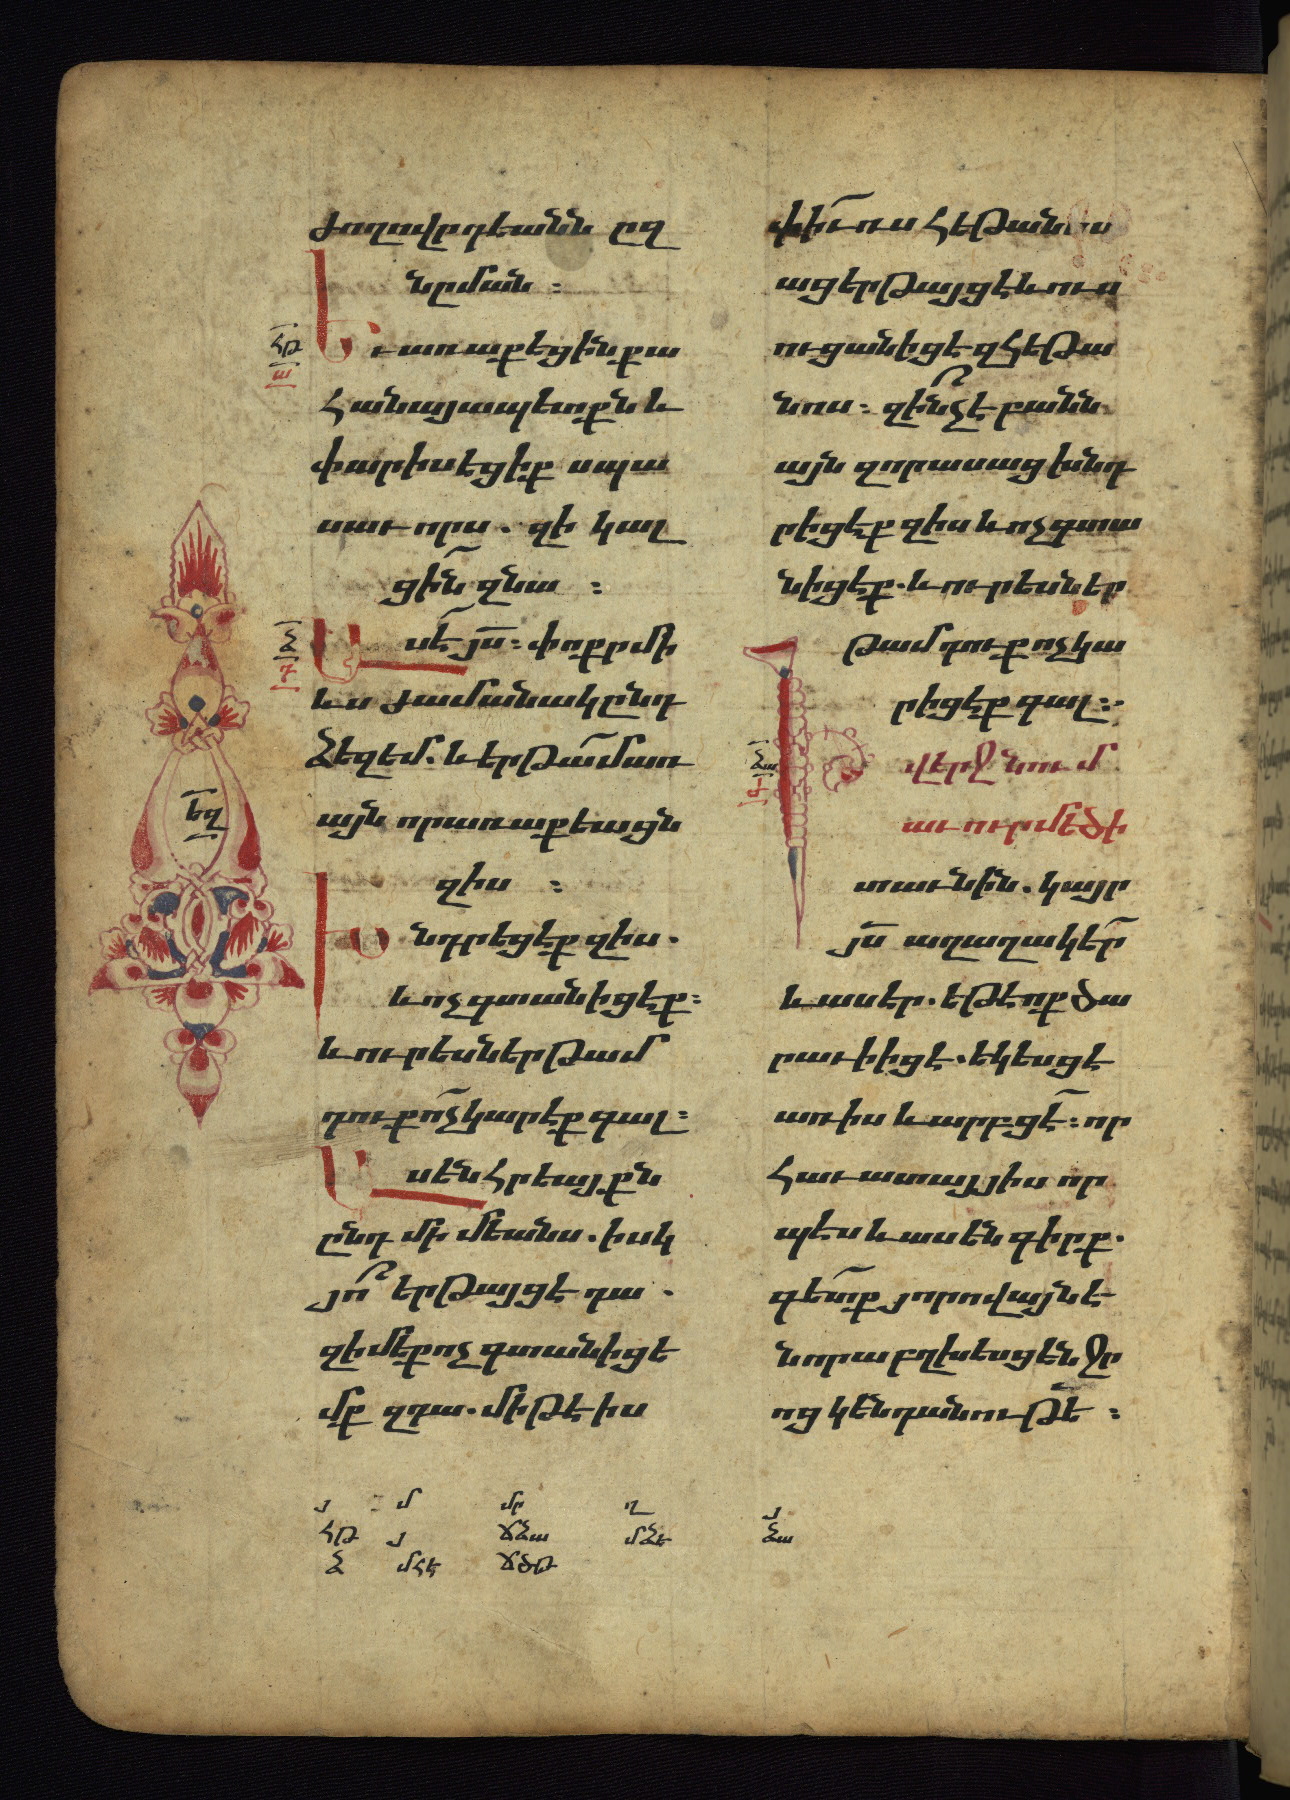 ժողովրդեանն ըզ
նըման ։
Եւ առաքեցին քա
հանայապետքն և
փարիսեցիք սպա
սաւորս . զի կալ
ցին զնա ։
Ասէ յս ։ փոքր մի
ևս ժամանակ ընդ
ձեզ եմ . և երթամ առ
այն որ առաքեացն
զիս ։
Խնդրեցէք զիս .
և ոչ գտանիցէք ։
և ուր ես երթամ
դուք ոչ կարէք գալ ։
Ասեն հրեայքն
ընդ միմեանս . իսկ
յո երթայցէ դա .
զի մեք ոչ գտանիցե
մք զդա . միթէ ի ս
փիւռս հեթանոս
աց երթայցէ և ուս
ուցանիցէ զհեթա
նոս ։ զինչ է բանն
այն զոր ասաց խնդ
րիցէք զիս և ոչ գտա
նիցէք . և ուր ես եր
թամ դուք ոչ կա
րիցէք գալ ։
Ի վերջնում
աւուր մեծի
տաւնին . կայր
յս աղաղակէր
և ասէր . եթէ ոք ծա
րաւի իցէ . եկեսցէ
առ իս և արբցէ ։ որ
հաւատայ յիս որ
պէս և ասեն գիրք .
գետք յորովայնէ
նորա բղխեսցեն ջր
ոց կենդանութե ։
հթ
ա
ձ
դ
եզ
ձա
ժ
յ մ մր ղ յ
հթ յ ճձա մձե ձա
ձ մհէ ճծթ